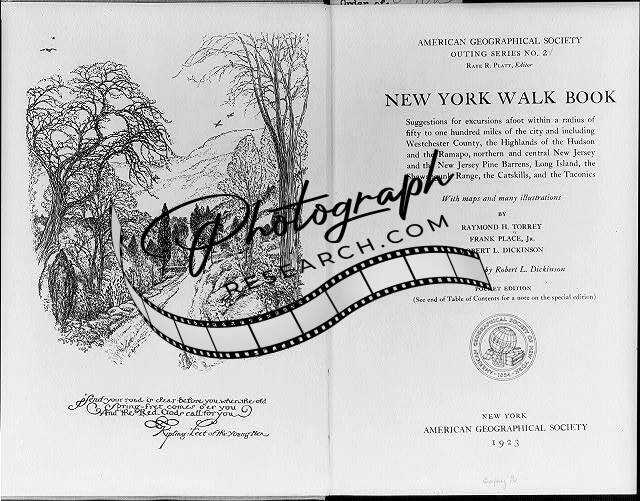 Send your road is clear before you when the old
Spring-fret comes o'er you
And the Red Gods call for you
Kipling: Feet of the Young Men
Order of
AMERICAN GEOGRAPHICAL SOCIETY
OUTING SERIES NO. 2
RAYE R. PLATT, Editor
NEW YORK WALK BOOK
Suggestions for excursions afoot within a radius of
fifty to one hundred miles of the city and including
Westchester County, the Highlands of the Hudson
and the Ramapo, northern and central New Jersey
and the New Jersey Pine Barrens, Long Island, the
Range, the Catskills, and the Taconics
With maps and many illustrations
BY
RAYMOND H. TORREY
FRANK PLACE, JR.
ROBERT L. DICKINSON
by Robert L. Dickinson
POCKET EDITION
(See end of Table of Contents for a note on the special edition)
NEW YORK
AMERICAN GEOGRAPHICAL SOCIETY
1923
Photograph
RESEARCH.COM